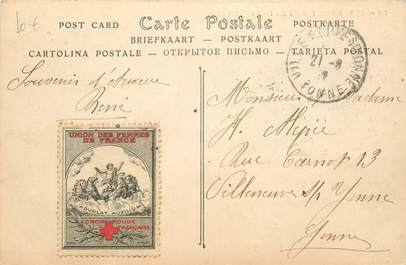 10 €
POST CARD Carte Postale POSTKARTE
BRIEFKAART — POSTKAART
CARTOLINA POSTALE — ОТКРЫТОЕ ПИСЬМО — TARJETA POSTAL
21 - 8
YONNE
Souvenir d'Auxerre
René
Monsieur Madame
H.
Rue Carnot 13
Villeneuve s/ Yonne
Yonne
UNION DES FEMMES
DE FRANCE
CROIX ROUGE
FRANÇAISE